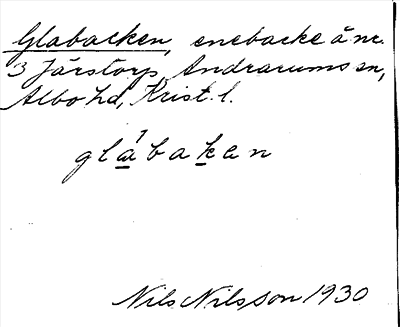 Glabacken, enebacke å nr.
3 Järstorp, Andrarums sn,
Albo hd, Krist. l.
gla̱¹baḵen
Nils Nilsson 1930